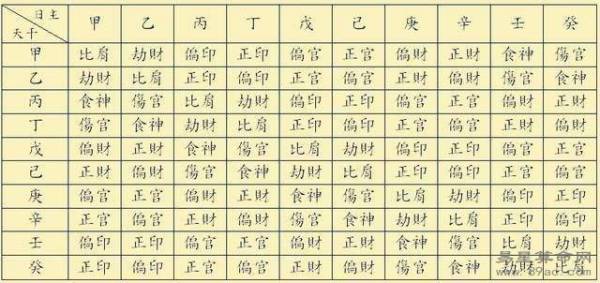 日主
天干 甲 乙 丙 丁 戊 己 庚 辛 壬 癸
甲 比肩 劫財 偏印 正印 偏官 正官 偏財 正財 食神 傷官
乙 劫財 比肩 正印 偏印 正官 偏官 正財 偏財 傷官 食神
丙 食神 傷官 比肩 劫財 偏印 正印 偏官 正官 偏財 正財
丁 傷官 食神 劫財 比肩 正印 偏印 正官 偏官 正財 偏財
戊 偏財 正財 食神 傷官 比肩 劫財 偏印 正印 偏官 正官
己 正財 偏財 傷官 食神 劫財 比肩 正印 偏印 正官 偏官
庚 偏官 正官 偏財 正財 食神 傷官 比肩 劫財 偏印 正印
辛 正官 偏官 正財 偏財 傷官 食神 劫財 比肩 正印 偏印
壬 偏印 正印 偏官 正官 偏財 正財 食神 傷官 比肩 劫財
癸 正印 偏印 正官 偏官 正財 偏財 傷官 食神 劫財 比肩
算命网